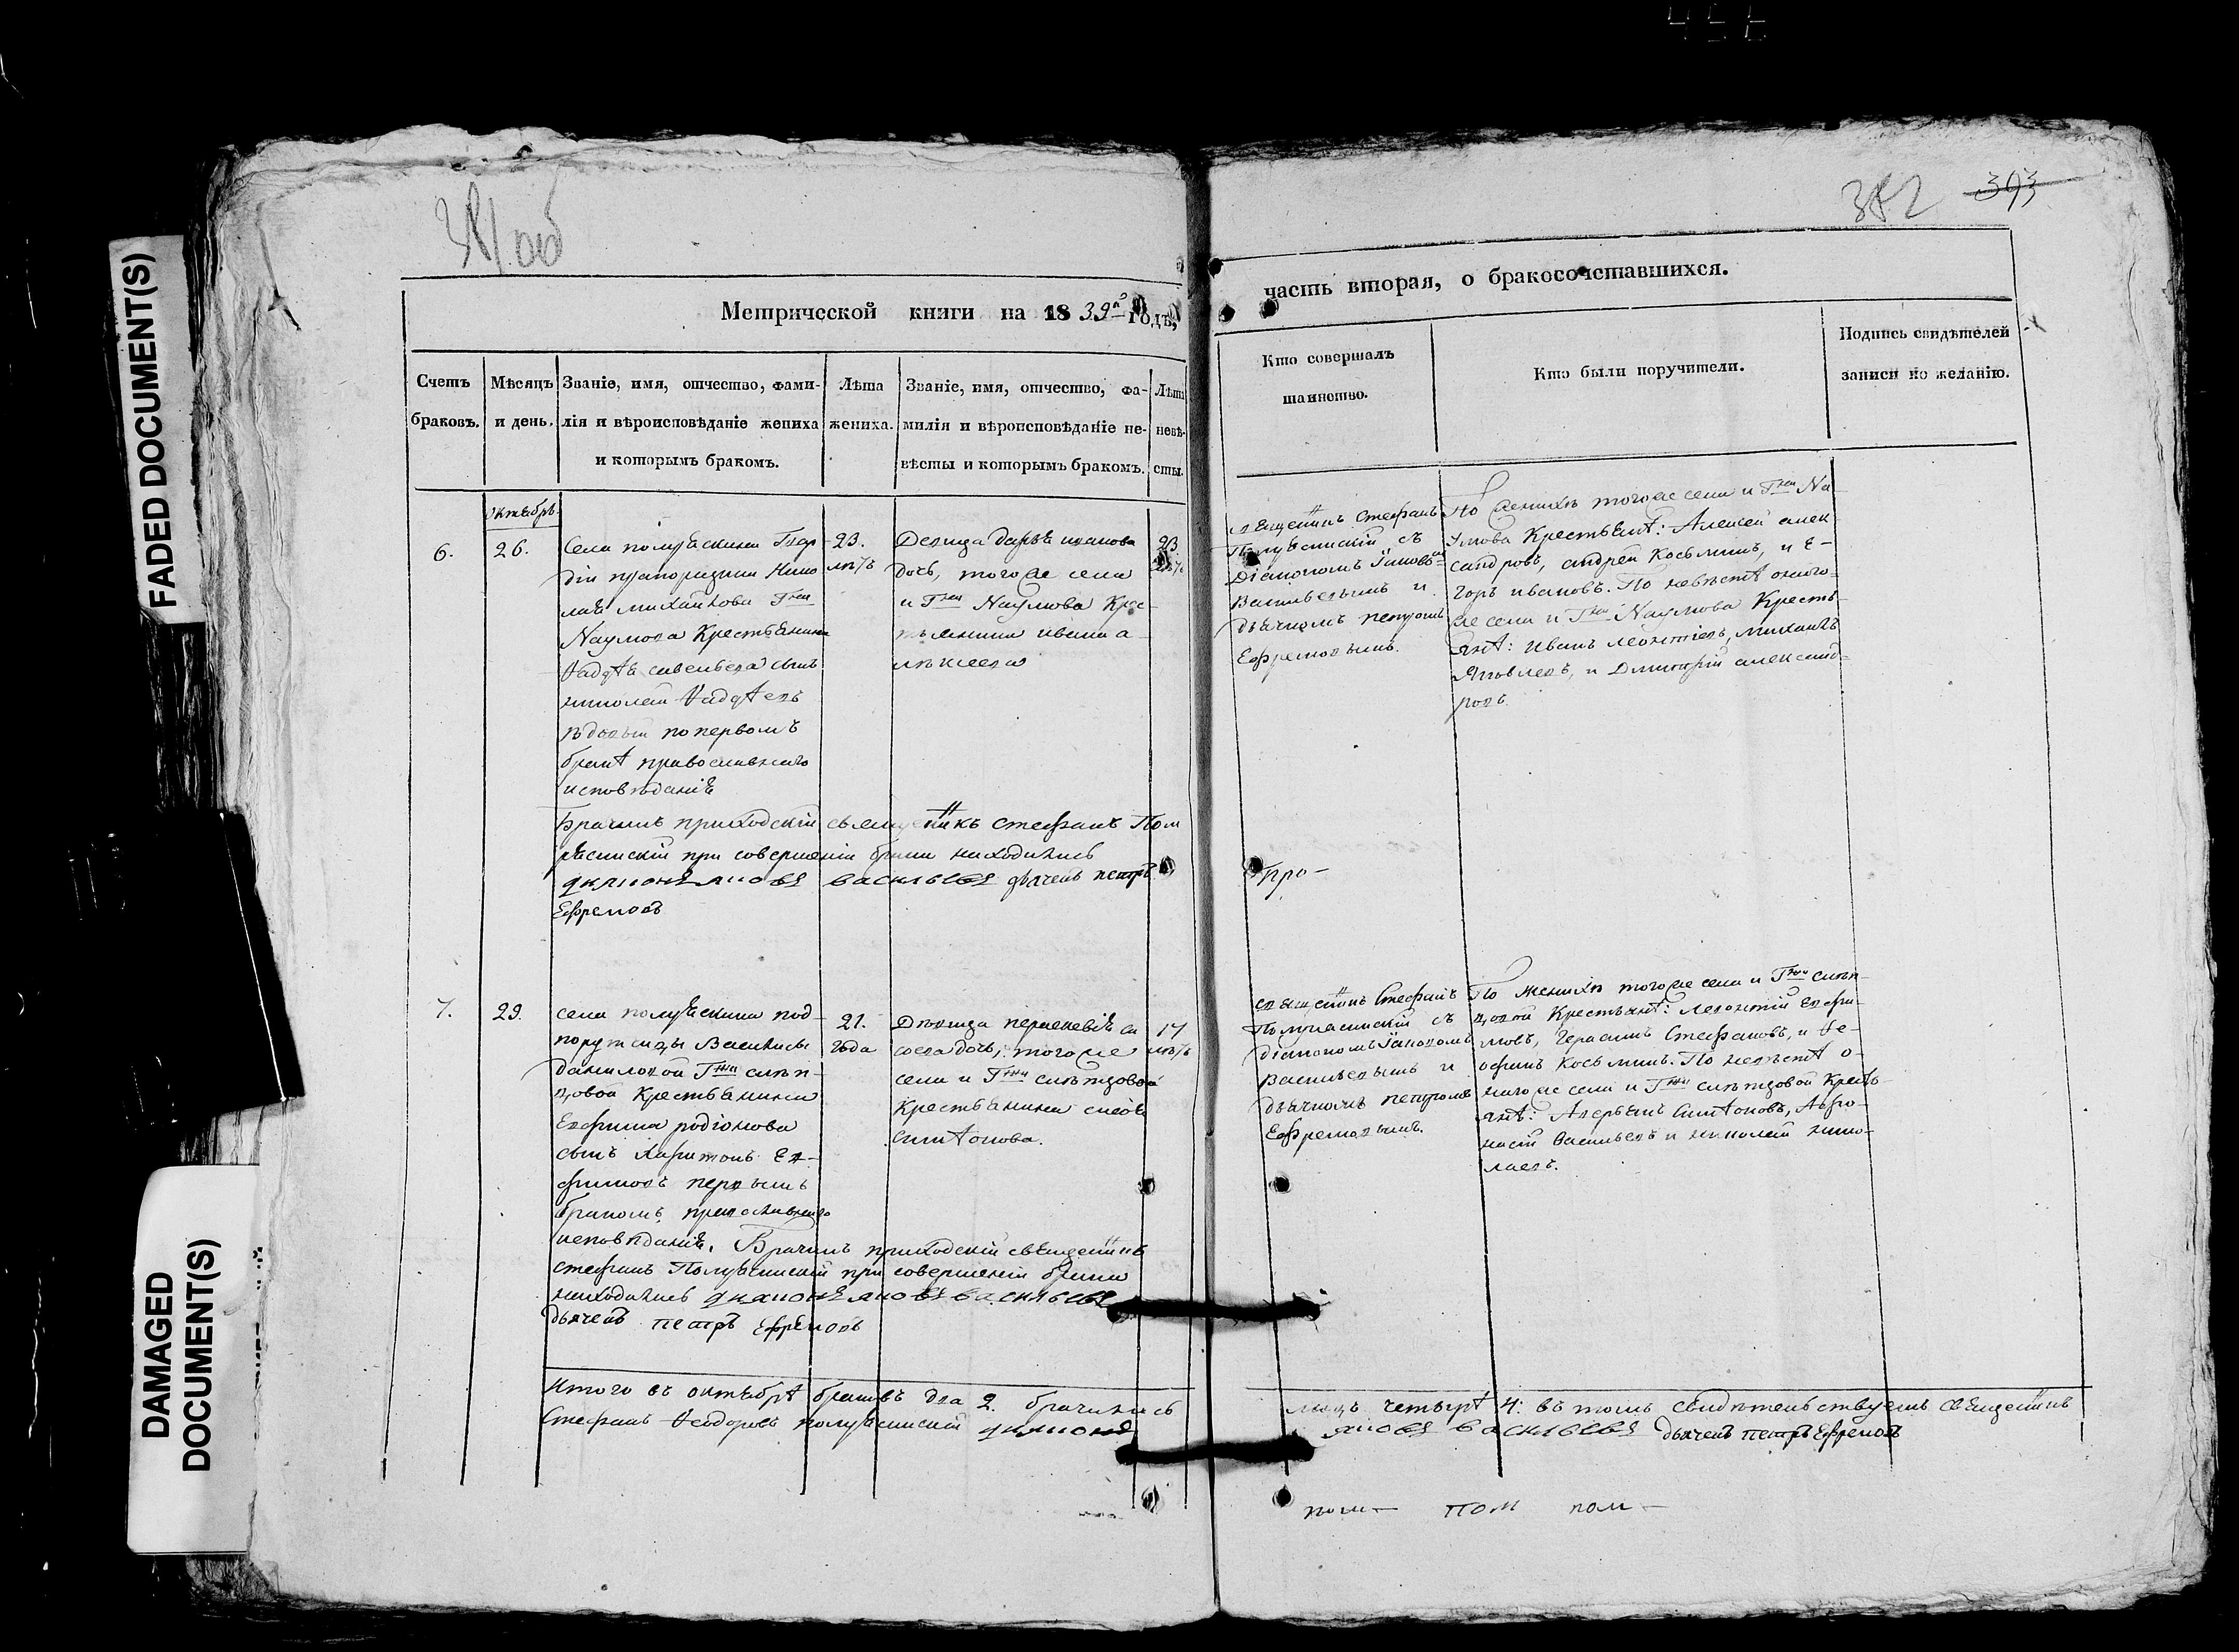 FADED DOCUMENT(S)
DAMAGED
DOCUMENT(S)
381 об
382 393
Метрической книги на 1839й годъ,
часть вторая, о бракосочетавшихся.
Счетъ
браковъ.
Мѣсяцъ
и день.
Званіе, имя, отчество, фами-
лія и вѣроисповѣданіе жениха
и которымъ бракомъ.
Лѣта
жениха.
Званіе, имя, отчество, фа-
милія и вѣроисповѣданіе не-
вѣсты и которымъ бракомъ.
Лѣта
невѣ-
сты.
Кто совершалъ
таинство.
Кто были поручители.
Подпись свидѣтелей
записи по желанію.
октябрь.
6.
26.
Села полуяскина Гвар
діи прапорщика Нико
лая михайлова Гжи
Наумова Крестьянина
Ѳадѣя савельева сынъ
николай Ѳадѣевъ
вдовый по первомъ
бракѣ православнаго
исповѣданія
23.
лѣтъ
Девица дарья иванова
дочь, тогоже села
и Гжи Наумова Крес-
тьянина ивана а-
лексеева
23.
лѣтъ
священникъ Стефанъ
съ
Діакономъ Іаковомъ
Васильевымъ и
дьячкомъ петромъ
Ефремовымъ.
По женихѣ тогоже села и Гжи На-
умова Крестьянѣ: Алексей алек-
сандровъ, андрей Косьминъ, и Е-
горъ ивановъ. По невѣстѣ оного-
же села и Гжи Наумова Кресть-
янѣ: иванъ леонтіевъ, михаилъ
Яковлевъ, и Дмитрій александ-
ровъ.
Брачилъ приходскій священникъ стефанъ Пол
при совершеніи брака находились
діаконъ яковъ васильевъ дьячекъ петръ
Ефремовъ
7.
29.
села полуяскина под-
порутчицы Василисы
даниловой Гжи слѣп-
цовой Крестьянина
Евфима родіонова
сынъ харитонъ Ев-
фимовъ первымъ
бракомъ, православнаго
исповѣданія.
21.
года
Дѣвица
дочь, тогоже
села и Гжи слѣпцовой
Крестьянина
симѣонова.
17
лѣтъ
священникъ Стефанъ
съ
діакономъ Іаковомъ
Васильевымъ и
дьячкомъ петромъ
Ефремовымъ.
По женихѣ тогоже села и Гжи слѣп-
цовой Крестьянѣ: леонтій Евфи-
мовъ, Герасимъ Стефановъ, и Ѳе-
офанъ Косьминъ. По невѣстѣ о-
ногоже села и Гжи слѣпцовой Кресть-
янѣ: Аверьянъ Симѣоновъ,
Васильевъ и николай нико-
лаевъ.
Брачилъ приходскій священникъ
стефанъ при совершеніи брака
находились діаконъ яковъ васильевъ
дьячекъ петръ Ефремовъ
Итого въ октябрѣ браковъ два 2. брачились
лицъ четырѣ 4: въ томъ свидѣтельствуемъ священникъ
Стефанъ Ѳеодоровъ діаконъ
яковъ васильевъ дьячекъ петръ Ефремовъ
пом— пом пом—